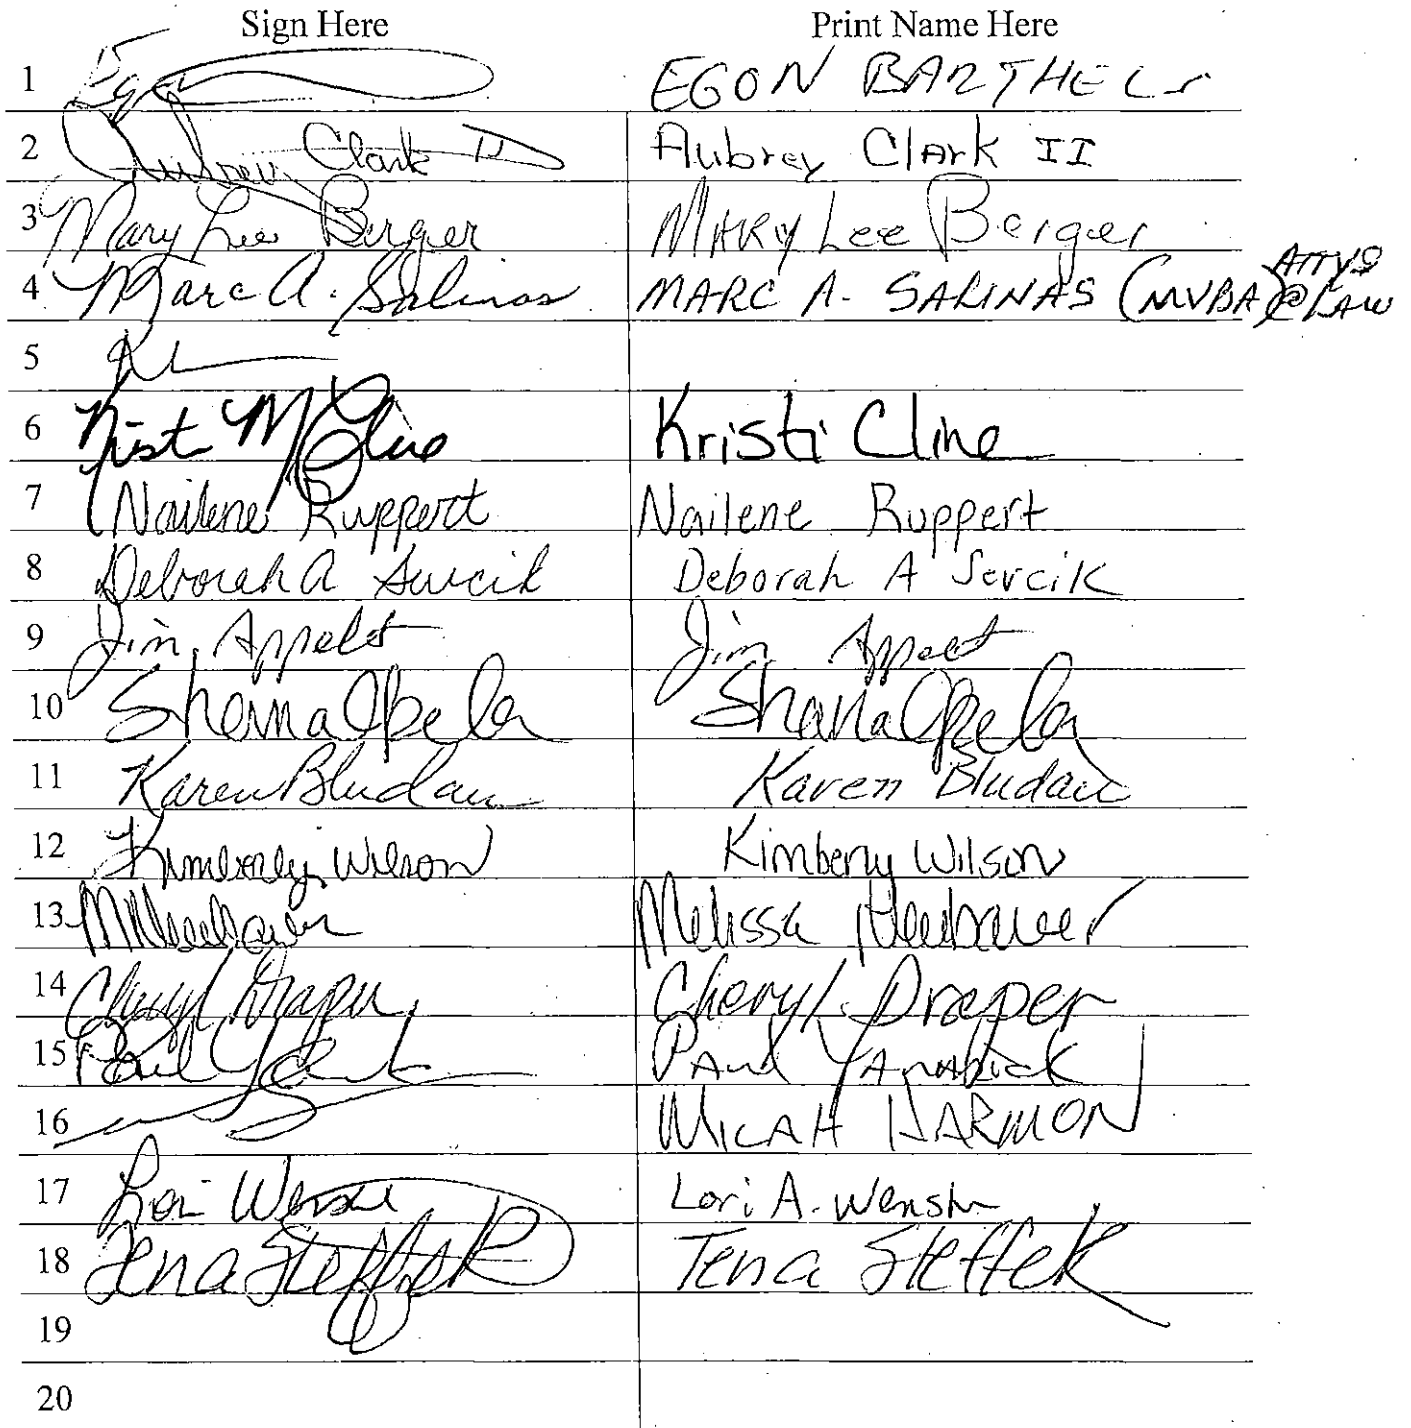 Sign Here Print Name Here
1 EGON BARTHELS
2 Aubrey Clark II Aubrey Clark II
3 Mary Lee Berger Mary Lee Berger
4 Marc A. Salinas MARC A. SALINAS (MVBA) ATTYS @ LAW
5
6 Kristi M Cline Kristi Cline
7 Nailene Ruppert Nailene Ruppert
8 Deborah A Sevcik Deborah A Sevcik
9 Jim Appelt Jim Appelt
10 Shana Opela Shana Opela
11 Karen Bludau Karen Bludau
12 Kimberly Wilson Kimberly Wilson
13 M Neubauer Melissa Neubauer
14 Cheryl Draper Cheryl Draper
15 Paul Paul Yanabick
16 MICAH HARMON
17 Lori Wenske Lori A. Wenske
18 Tena Steffek Tena Steffek
19
20